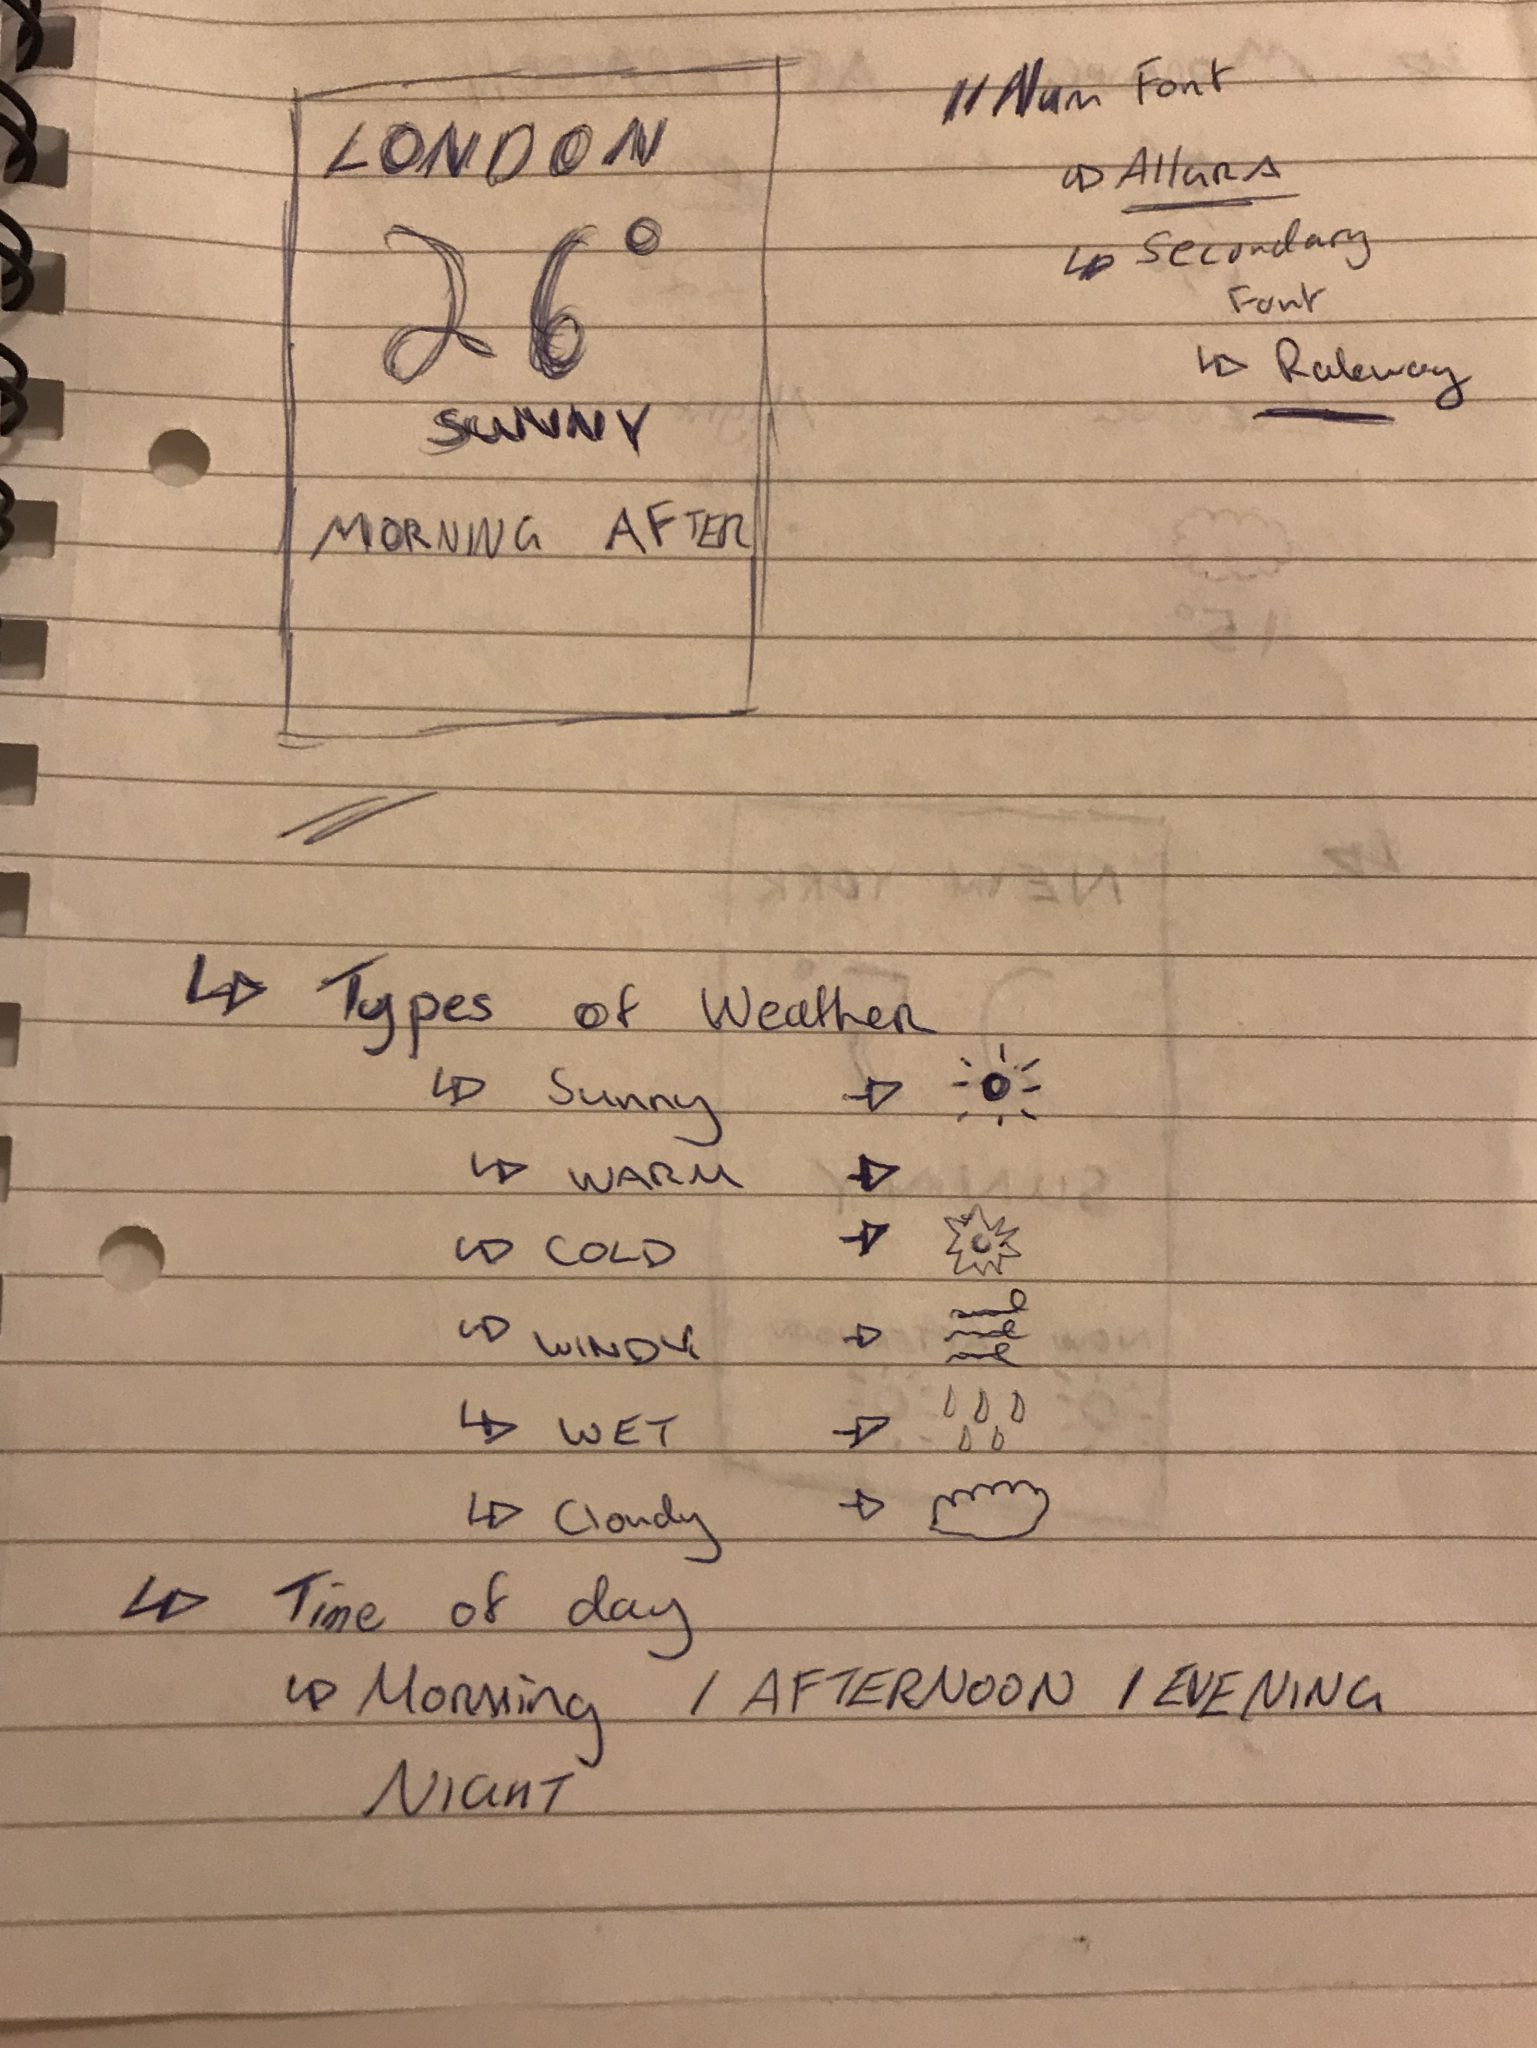 LONDON
26°
SUNNY
MORNING AFTER
// Num Font
Allura
Secondary
Font
Raleway
Types of Weather
Sunny
WARM
COLD
WINDY
WET
Cloudy
Time of day
Morning / AFTERNOON / EVENING
NIGHT
NEW YORK
SUNNY
15°